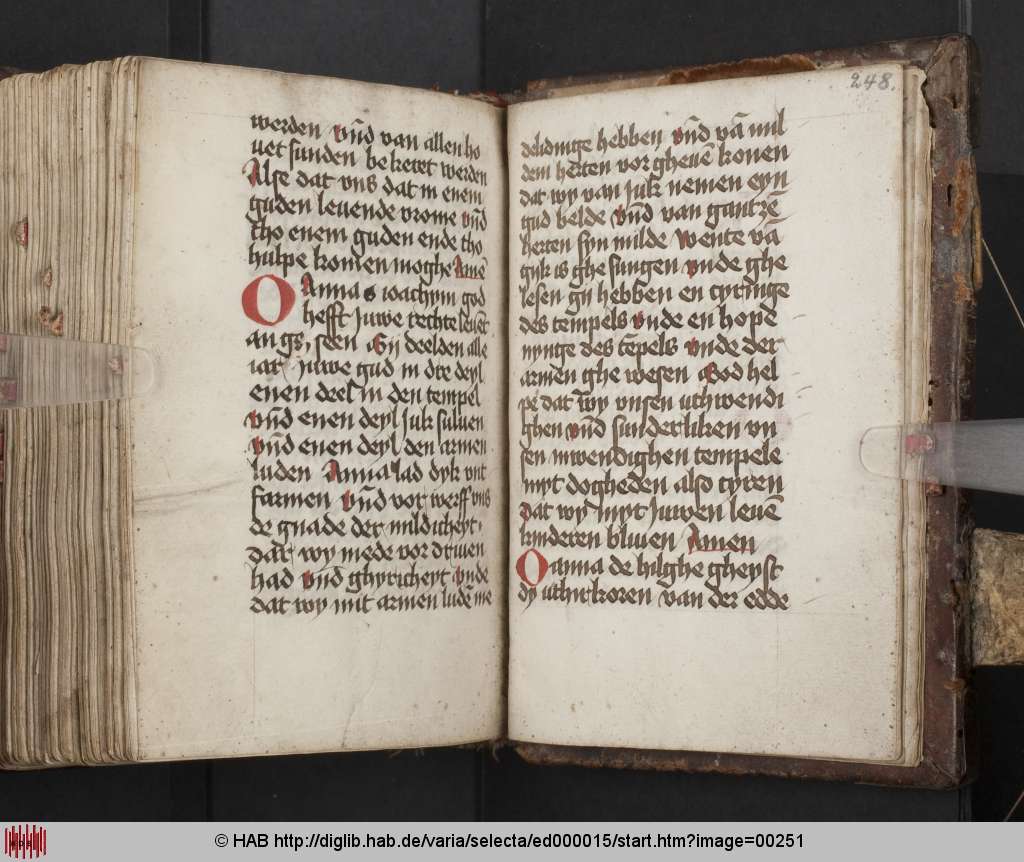 werden vn̄d van allen ho
uet sunden bekeret werden
Alse dat vns dat in enem
guden leuende vrome vn̄d
tho enem guden ende tho
hulpe komen moghe Amē
O Anna ioachym god
hefft Juwe rechte leuēt
an ghe seen Gy deelden alle
iar Juwe gud in dre deyl
enen deel in den tempel
vn̄d enen deyl Juk suluen
vn̄d enen deyl den armen
luden Anna lad dyk vnt
farmen vn̄d vor werff vns
de gnade der mildicheyt
dat wy mede vor driuen
had vn̄d ghyricheyt vnde
dat wy mit armen ludē me
248.
delidinge hebben vn̄d vā mil
dem herten vor gheuē konen
dat wy van Juk nemen eyn
gud belde vn̄d van gantzē
herten syn milde wente vā
gyk is ghe sungen vnde ghe
lesen gy hebben en cyringe
des tempels vnde en hope
nynge des tēpels vnde der
armen ghe wesen God hel
pe dat wy vnsen vthwendi
ghen vn̄d sunderliken vn
sen inwendighen tempele
myt dogheden also cyren
dat wy myt Juwen leuē
kinderen bliuen Amen
O anna de hilghe gheyst
dy vthirkoren van der edde
© HAB http://diglib.hab.de/varia/selecta/ed000015/start.htm?image=00251